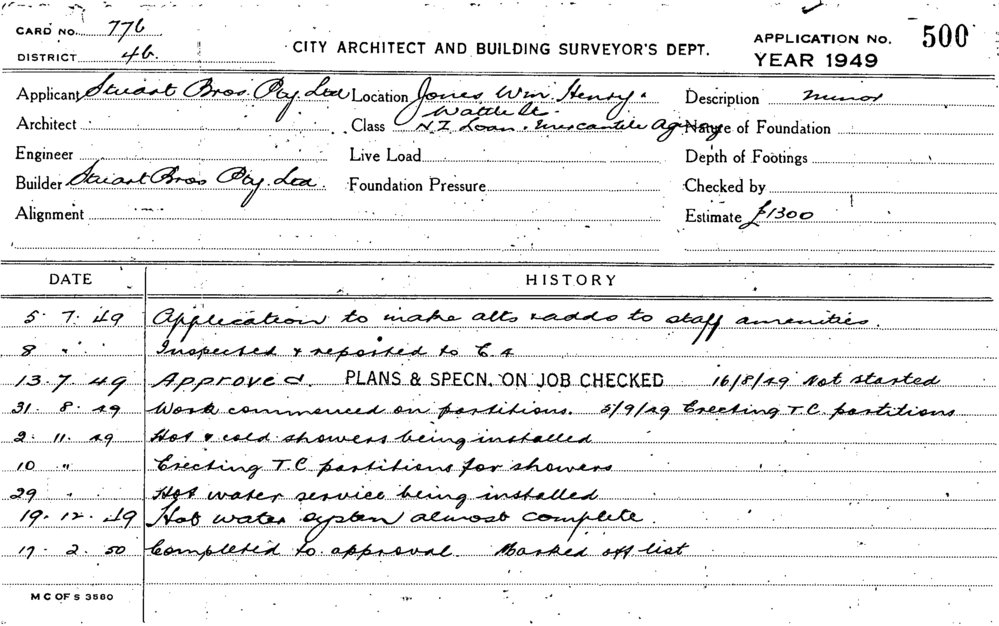 CARD No. 776
APPLICATION No. 500
DISTRICT 4b.
CITY ARCHITECT AND BUILDING SURVEYOR'S DEPT.
YEAR 1949
Applicant Stuart Bros. Pty. Ltd Location Jones, Wm. Henry & Description minor
Wattle Sts.
Architect Class N Z Loan & Mercantile Agency Nature of Foundation
Engineer Live Load Depth of Footings
Builder Stuart Bros Pty. Ltd. Foundation Pressure Checked by
Alignment Estimate £1300
DATE HISTORY
5. 7. 49 Application to make alts & adds to staff amenities.
8 " Inspected & reported to C.A
13. 7. 49 Approved. PLANS & SPECN. ON JOB CHECKED 16/8/49 Not started
31. 8. 49 Work commenced on partitions. 5/9/49 Erecting T.C. partitions
2. 11. 49 Hot & cold showers being installed
10 " Erecting T.C. partitions for showers
29 " Hot water service being installed
19. 12. 49 Hot water system almost complete.
17. 2. 50 Completed to approval. Marked off list
M C OF S 3580